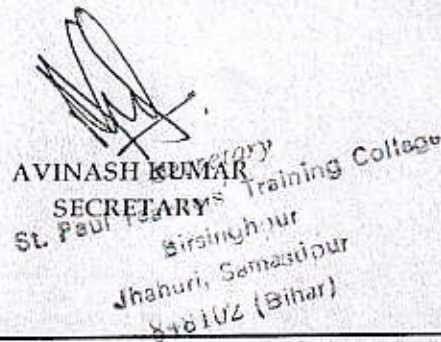 Secretary
AVINASH KUMAR
SECRETARY
St. Paul Teachers' Training College
Birsinghpur
Jhahuri, Samastipur
848102 (Bihar)